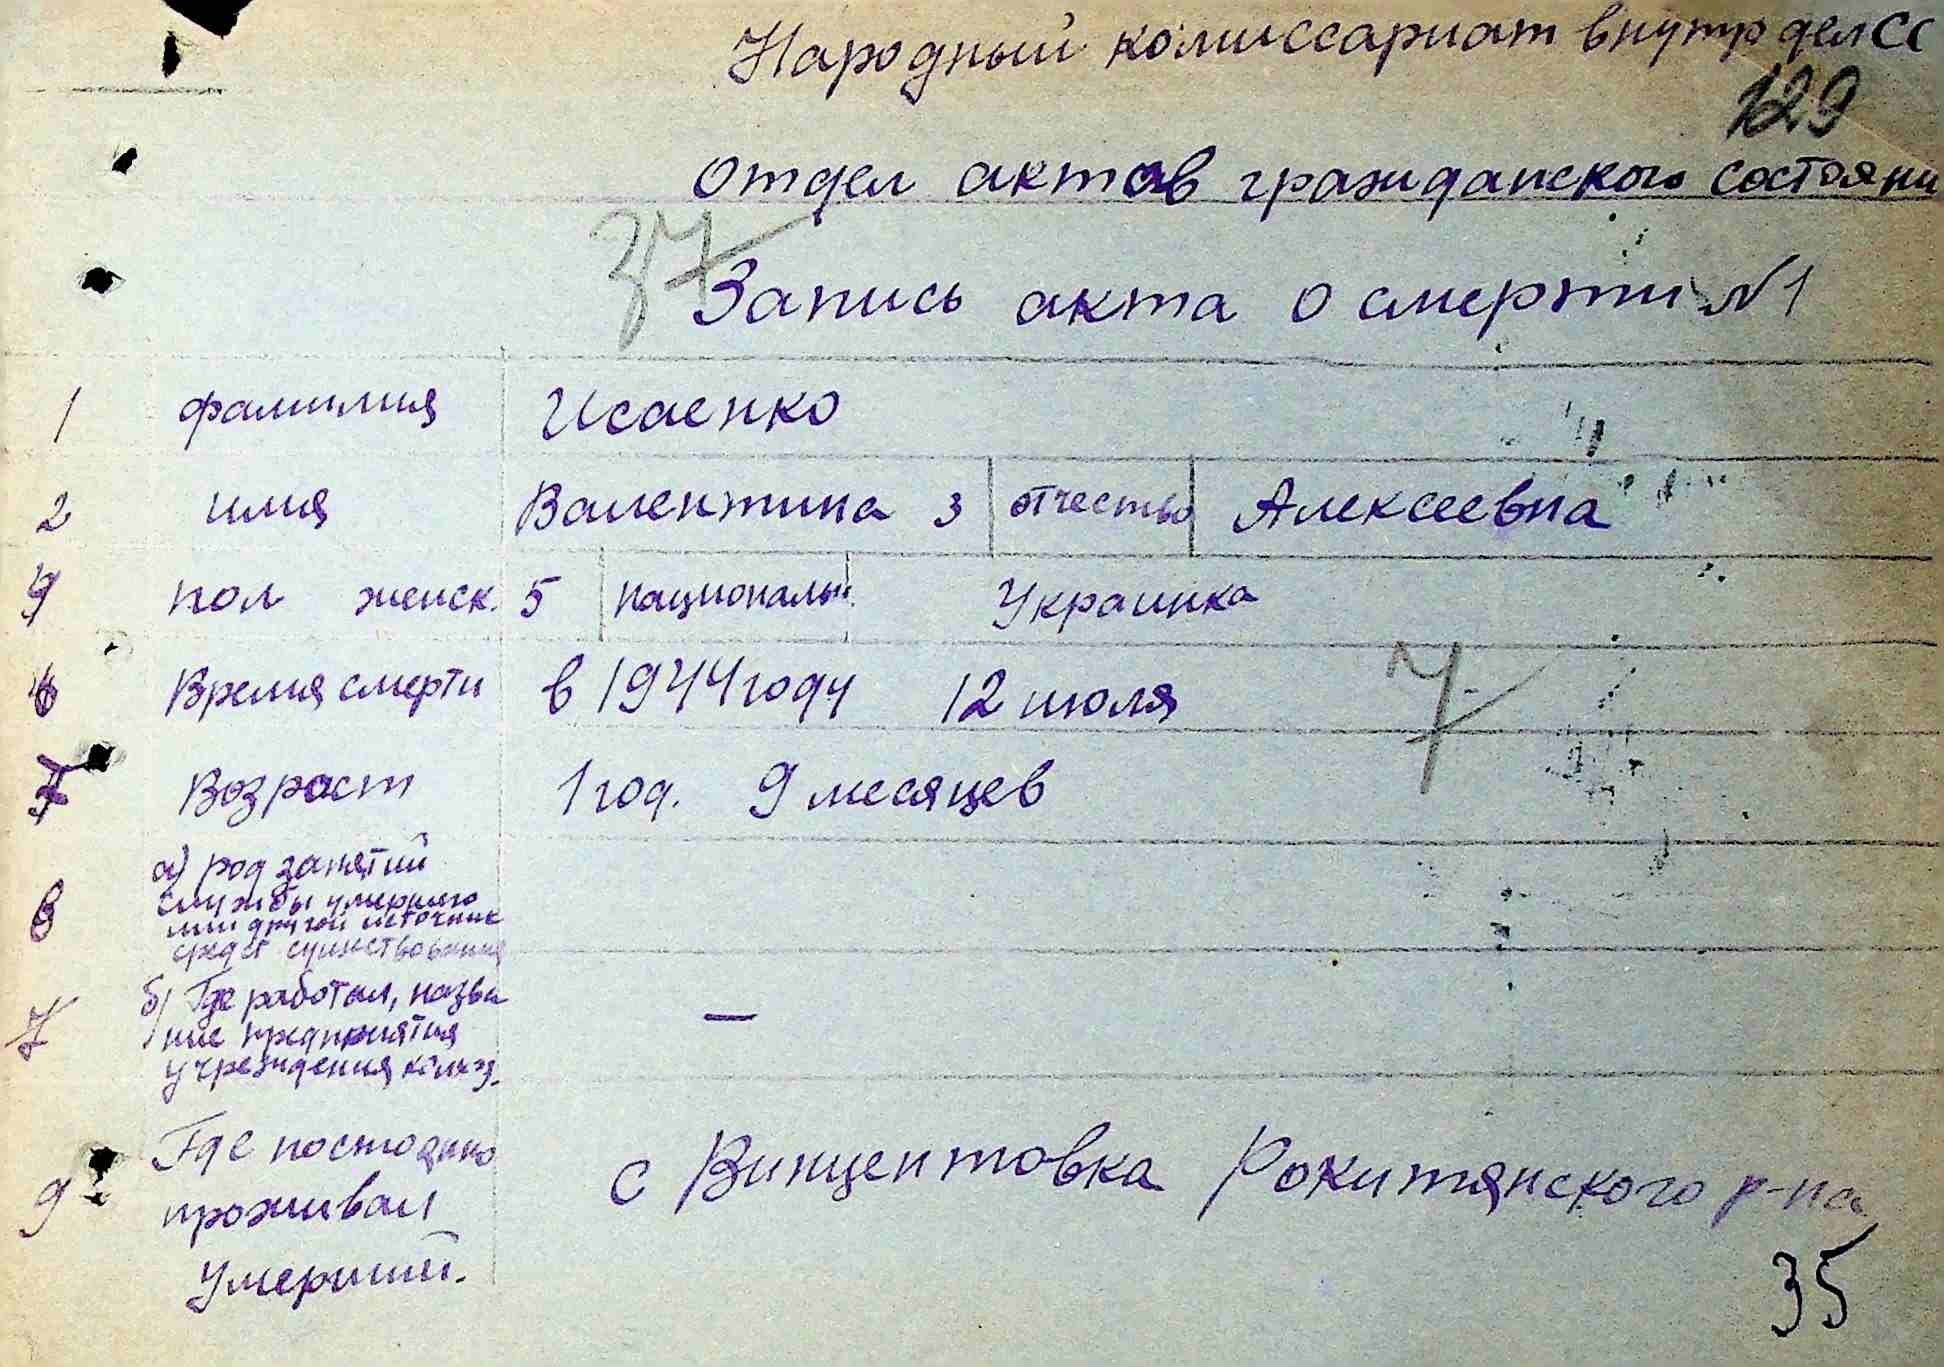 Народный комиссариат внутр дел СС
129
отдел актов гражданского состояни
37
Запись акта о смерти N1
1 фамилия Исаенко
2 имя Валентина 3 отчество Алексеевна
4 пол женск. 5 националы. Украинка
6 Время смерти в 1944 году 12 июля
7
7 Возраст 1 год. 9 месяцев
8 а) род занятий
службы умершего
или другой источник
средст существования
7 б) Где работал, назва
ние предприятия
учрежедения колхоз. —
9 Где постоянно
проживал с Винцентовка Рокитянского р-на
умерший.
35